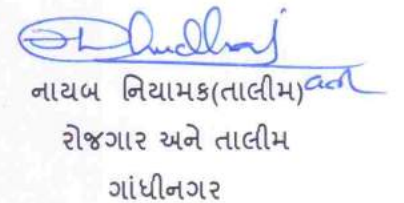 નાયબ નિયામક(તાલીમ)
રોજગાર અને તાલીમ
ગાંધીનગર